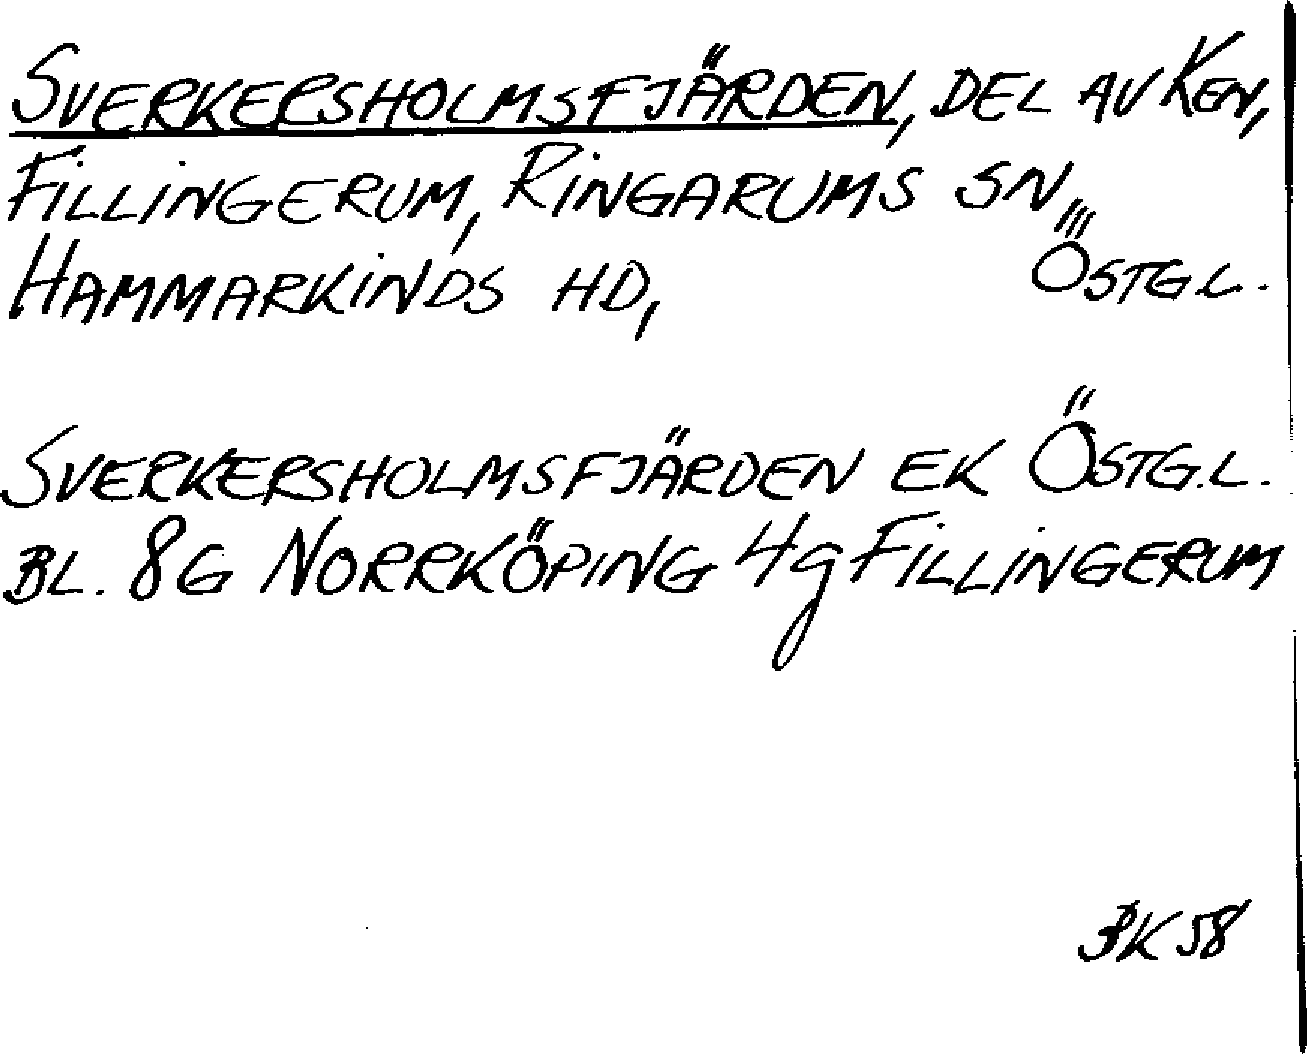 SVERKERSHOLMSFJÄRDEN, DEL AV KEN,
FILLINGERUM, RINGARUMS SN,
HAMMARKINDS HD, ÖSTG.L.
SVERKERSHOLMSFJÄRDEN EK ÖSTG.L.
BL. 8G NORRKÖPING 4g FILLINGERUM
BK 58